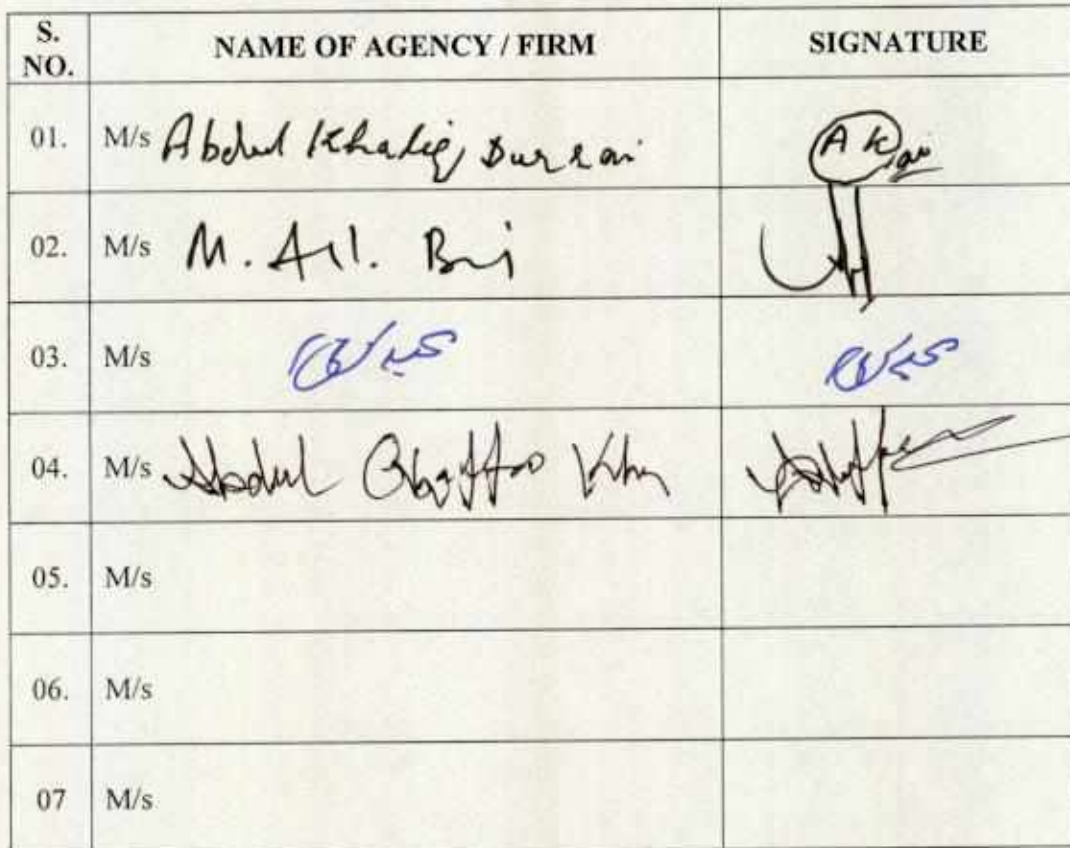 S. NO. NAME OF AGENCY / FIRM SIGNATURE
01. M/s Abdul Khaliq Durrani AK
02. M/s M.
03. M/s
04. M/s Abdul Ghaffar Khan
05. M/s
06. M/s
07 M/s